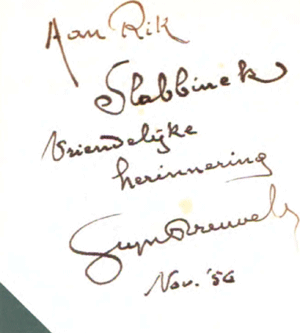 Aan Rik
Slabbinck
Vriendelijke
herinnering
Stijn Streuvels
Nov. '56